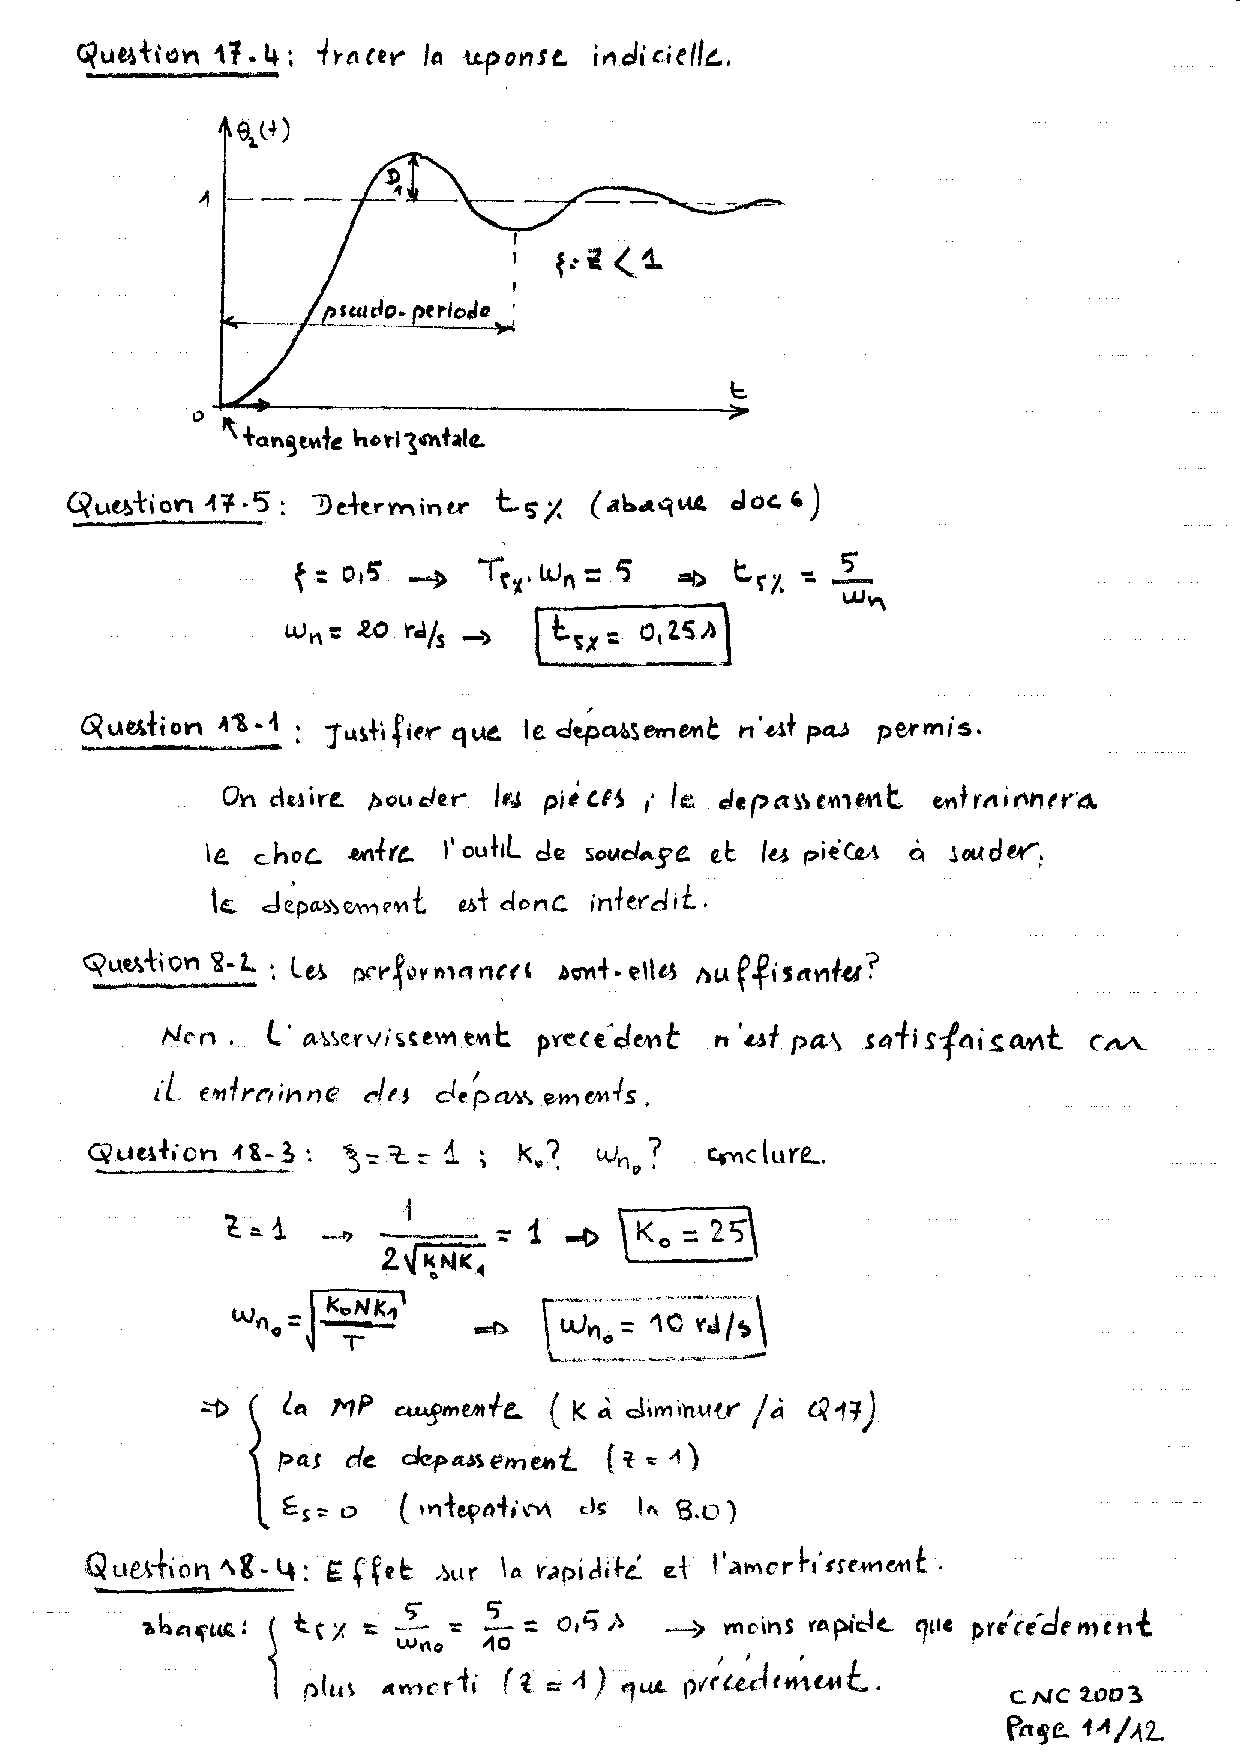 Question 17.4 : tracer la reponse indicielle.
θ₂(t)
1
D₁
ξ = Z < 1
pseudo-periode
t
0
tangente horizontale
Question 17.5 : Determiner t5% (abaque doc 6)
ξ = 0,5 → T5%.ωn = 5 ⇒ t5% = 5/ωn
ωn = 20 rd/s → t5% = 0,25 s
Question 18-1 : Justifier que le dépassement n'est pas permis.
On desire souder les piéces ; le depassement entrainnera
le choc entre l'outil de soudage et les piéces à souder,
le dépassement est donc interdit.
Question 8-2 : Les performances sont-elles suffisantes ?
Non. L'asservissement precédent n'est pas satisfaisant car
il entrainne des dépassements.
Question 18-3 : ξ = Z = 1 ; K₀ ? ωn₀ ? conclure.
Z = 1 → 1/(2√(K₀NK₁)) = 1 ⇒ K₀ = 25
ωn₀ = √(K₀NK₁/T) ⇒ ωn₀ = 10 rd/s
⇒ { la MP augmente (K à diminuer /à Q17)
pas de depassement (Z = 1)
εs = 0 (integration ds la B.O)
Question 18-4 : Effet sur la rapidité et l'amortissement.
abaque : { t5% = 5/ωn₀ = 5/10 = 0,5 s → moins rapide que précédement
plus amorti (Z = 1) que précédément.
CNC 2003
Page 11/12